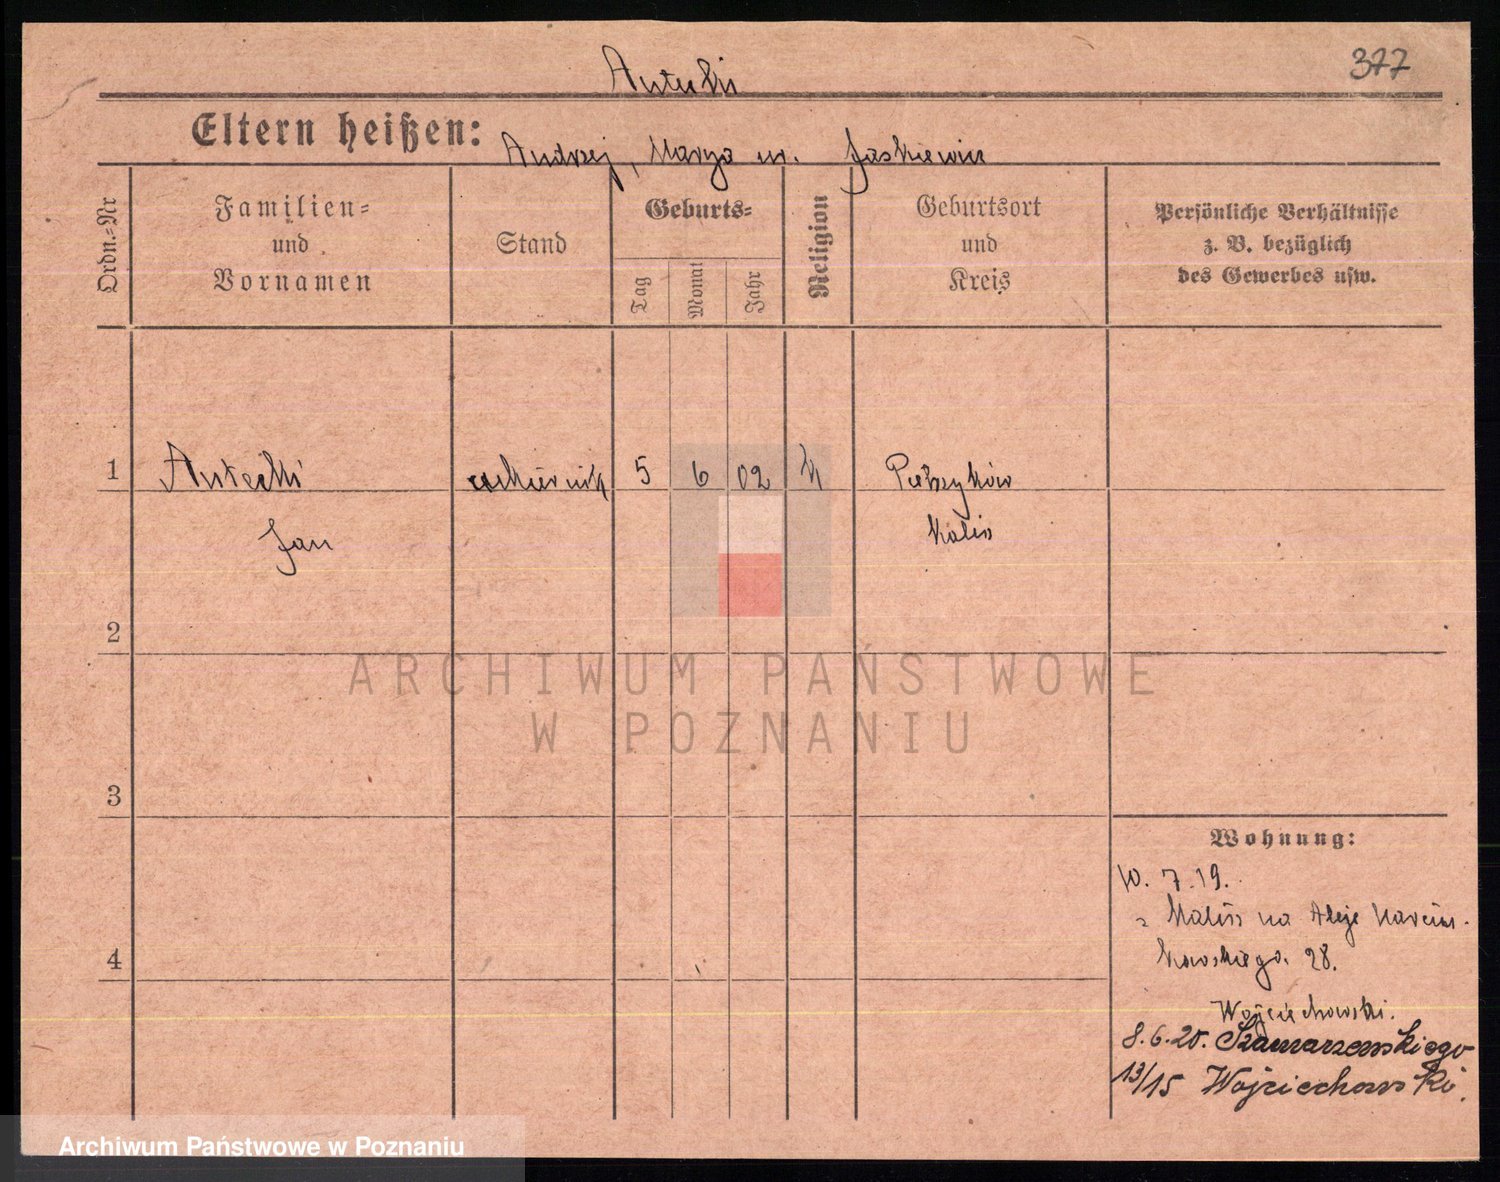 377
Antecki
Eltern heißen:
Andrzej, Marya ur. Jaskiewicz
Ordn.-Nr
Familien-
und
Vornamen
Stand
Geburts-
Tag
Monat
Jahr
Religion
Geburtsort
und
Kreis
Persönliche Verhältnisse
z. B. bezüglich
des Gewerbes usw.
1
Antecki
5
6
02
k
Pietrzyków
Jan
Kalisz
2
ARCHIWUM PAŃSTWOWE
W POZNANIU
3
Wohnung:
10. 7. 19.
z Kalisz na Aleje Marcin-
kowskiego. 28.
4
Wojciechowski.
8.6.20. Szamarzewskiego
13/15 Wojciechowski.
Archiwum Państwowe w Poznaniu